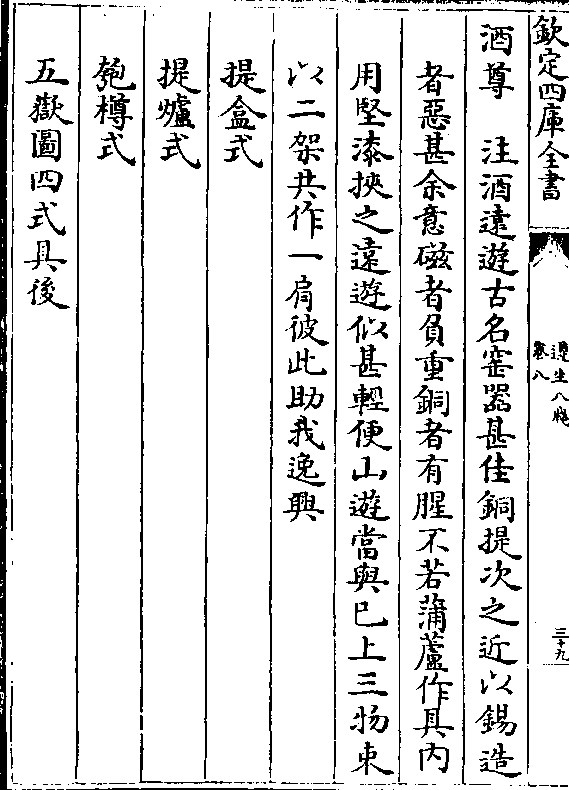 欽定四庫全書
遵生八牋
卷八
三十九
酒尊　注酒遠遊古名窑器甚佳銅提次之近以錫造
者惡甚余意磁者負重銅者有腥不若蒲蘆作具内
用堅漆挾之遠遊似甚輕便山遊當與巳上三物束
以二架共作一肩彼此助我逸興
提盒式
提爐式
匏樽式
五嶽圖四式具後